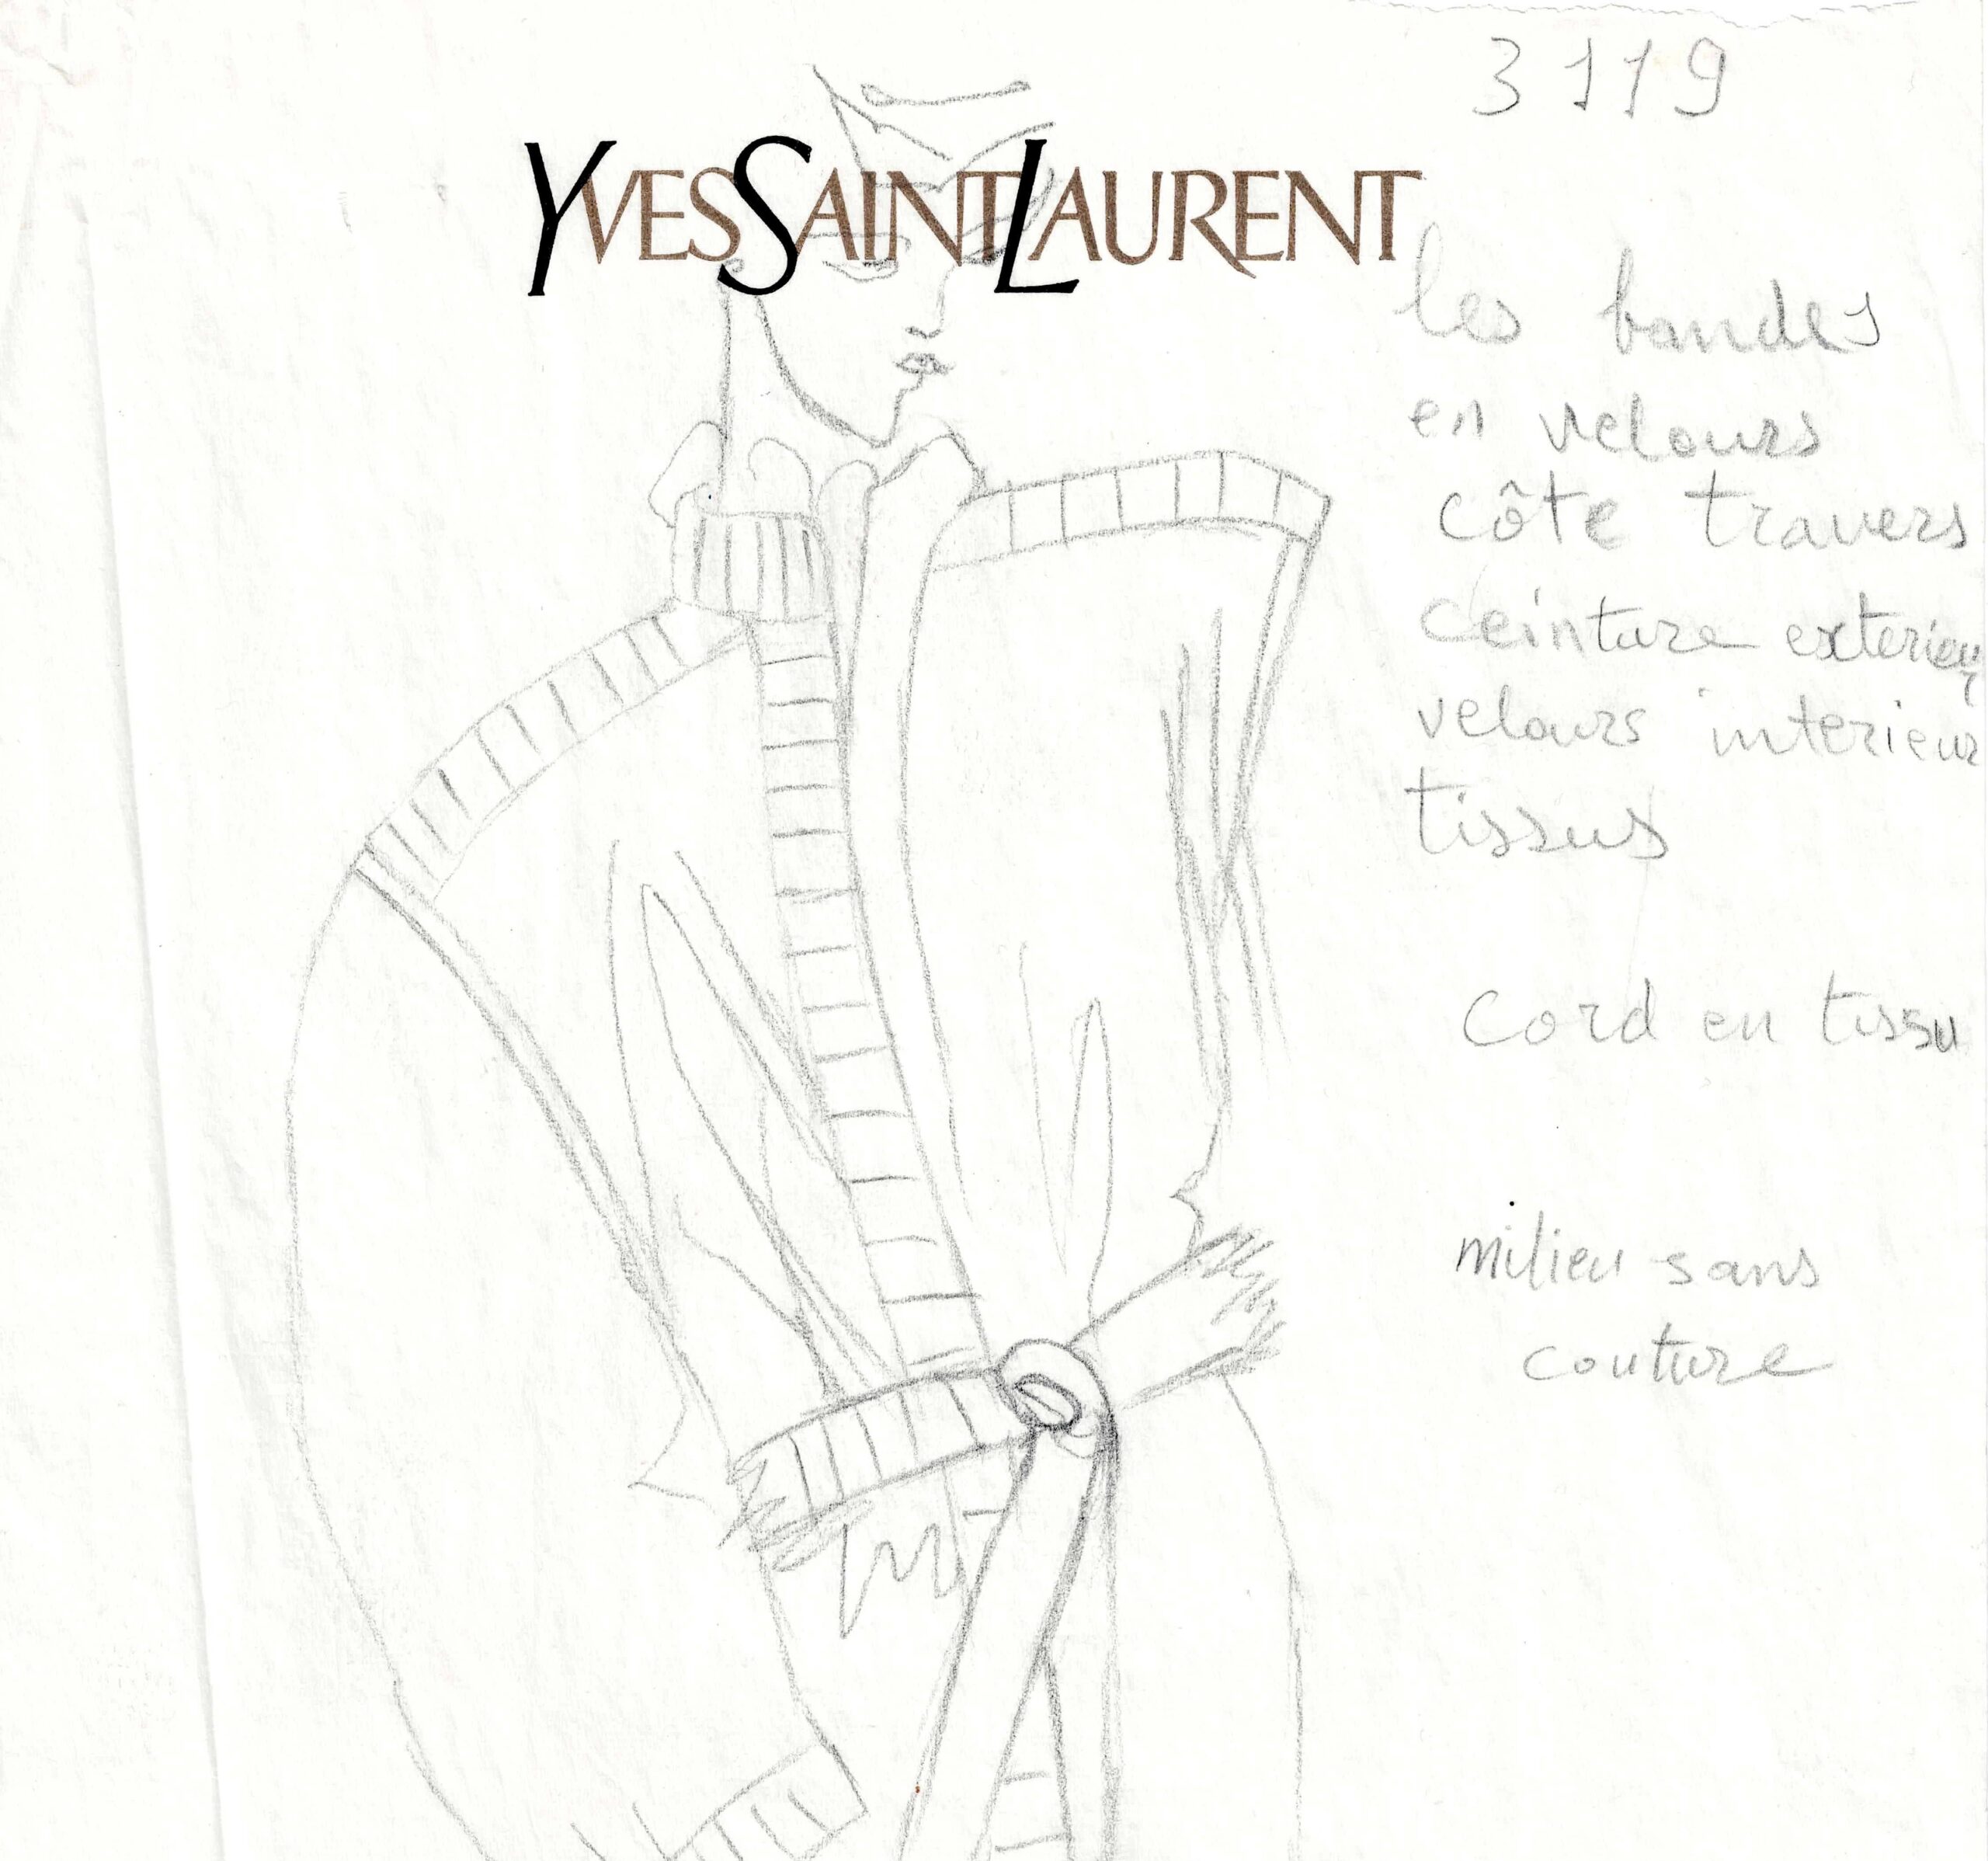 3119
YVES SAINT LAURENT
les bandes
en velours
côte travers
ceinture exterieur
velours interieur
tissus
Cord en tissu
milieu sans
couture